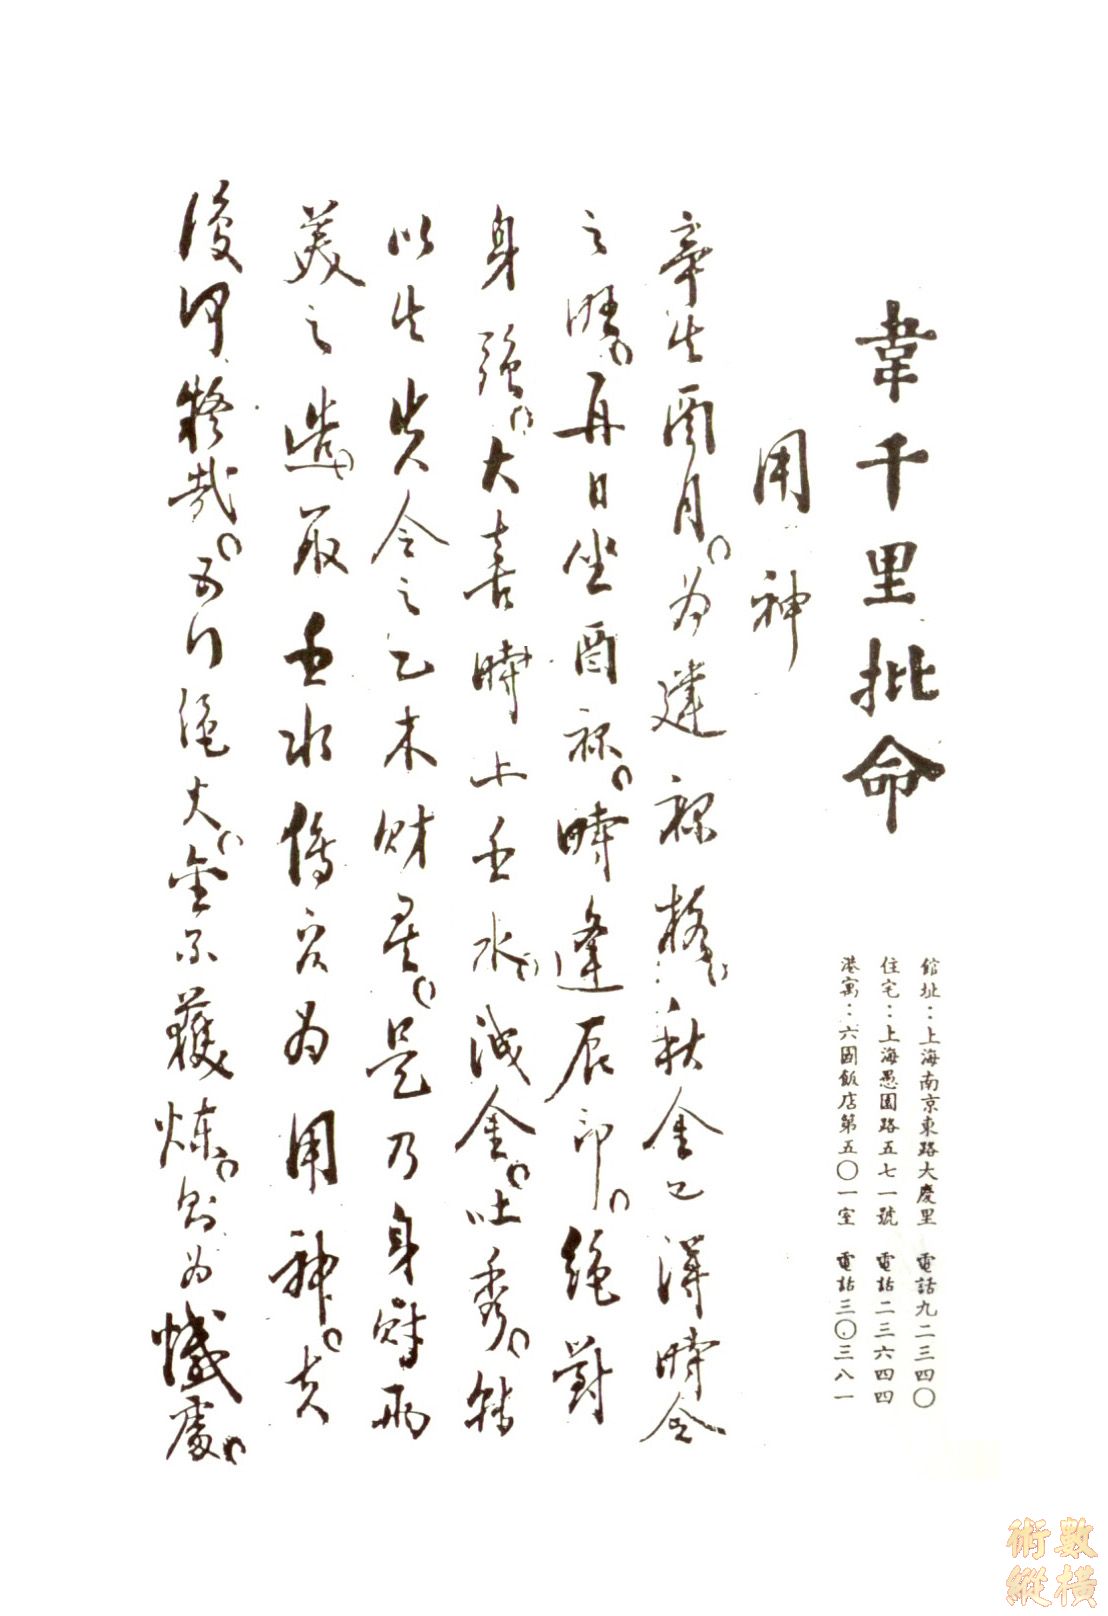 韋千里批命
館址：上海南京東路大慶里　電話九二三四〇
住宅：上海愚園路五七一號　電話二三六四四
港寓：六國飯店第五〇一室　電話三〇三八一
用神
辛生酉月。為建祿格。秋金已得時令
之旺。再日坐酉祿。時逢辰印。絕對
身強。大喜時上壬水。洩金。吐秀。轉
以生失令之乙木財星。是乃身財兩
美之造。取壬水傷官為用神。夫
復何疑哉。五行絕火。金不獲煉。則為憾處。
數橫
術縱